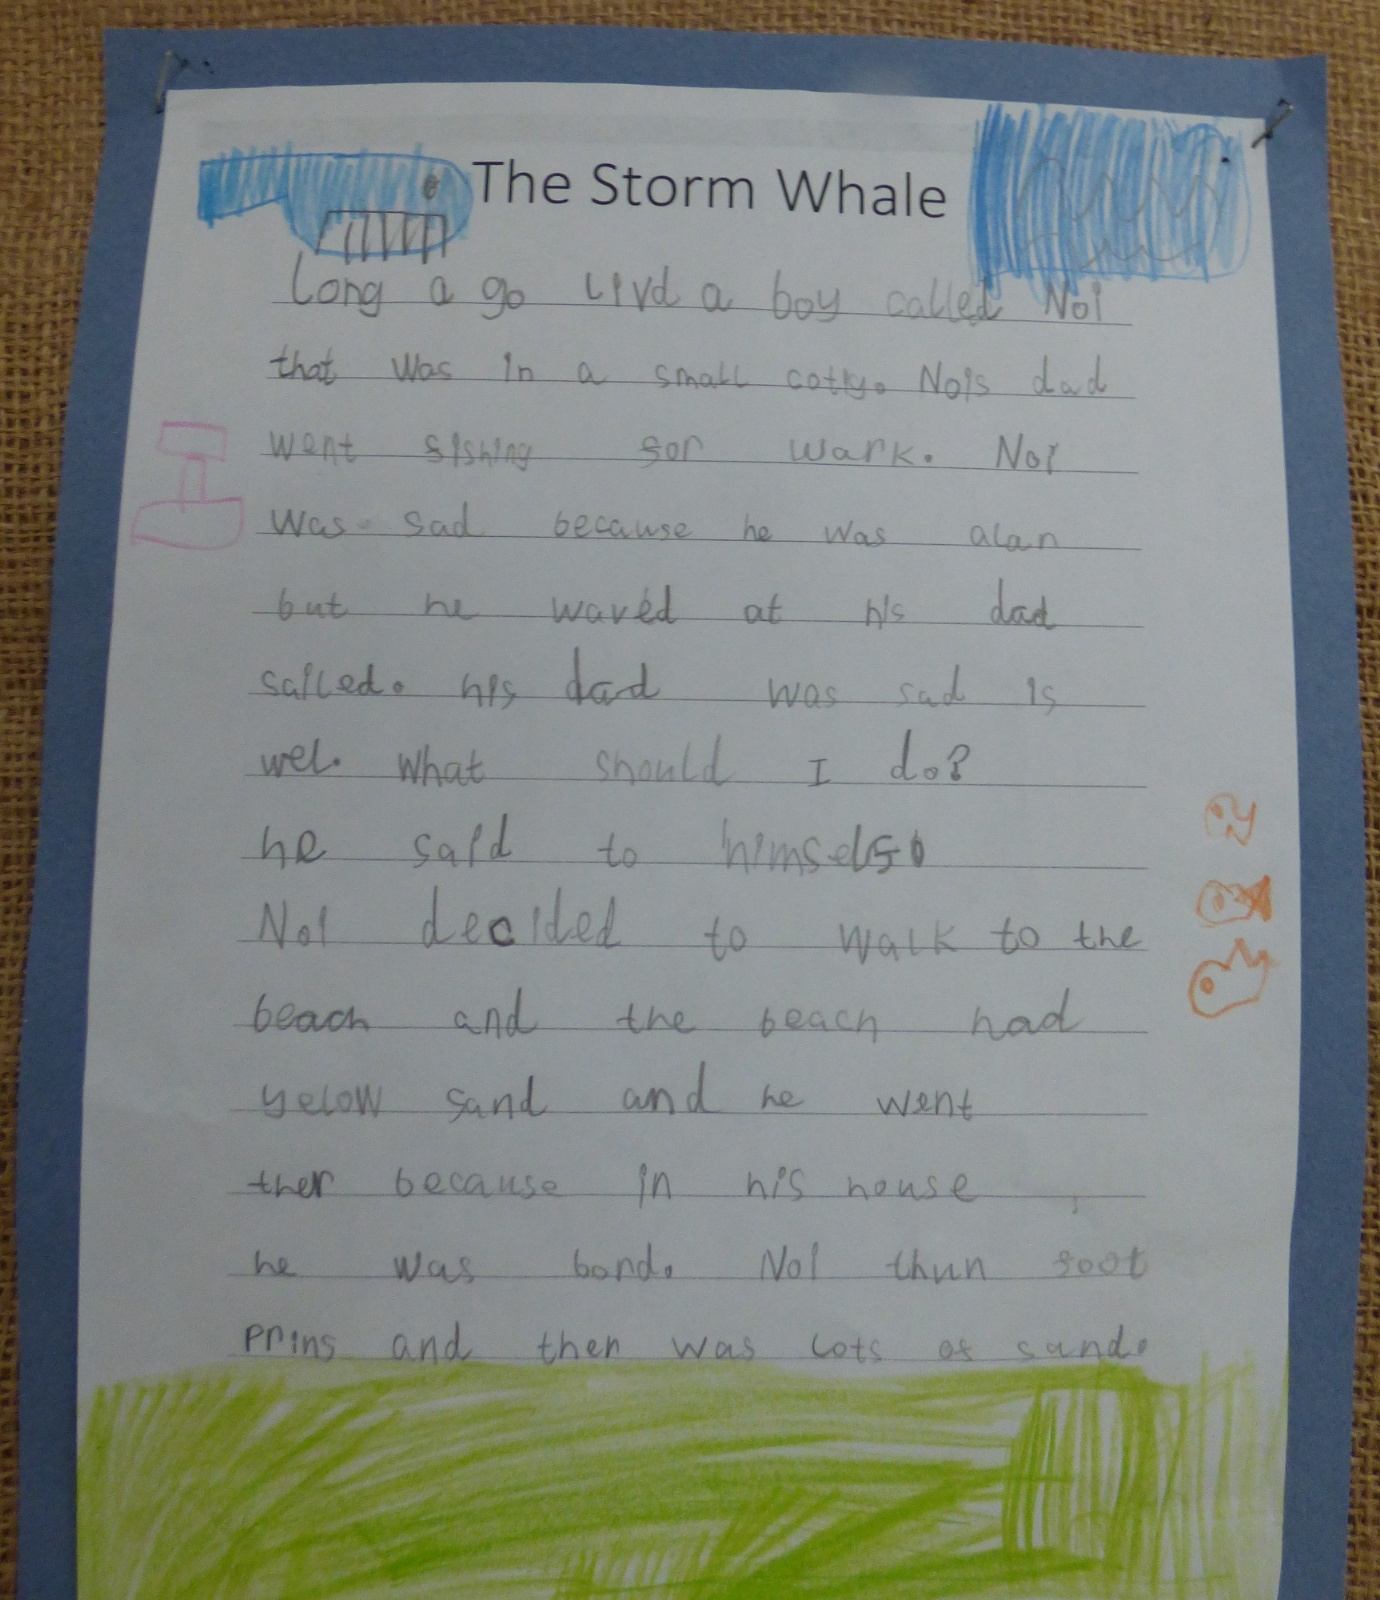 The Storm Whale
Long a go livd a boy called Noi
that was in a small coty. Nois dad
went fishing for wark. Noi
was sad because he was alan
but he waved at his dad
sailed. his dad was sad is
wel. what should I do?
he said to himself
Noi decided to walk to the
beach and the beach had
yelow sand and he went
ther because in his house
he was bord. Noi thun foot
prins and ther was lots of sand.